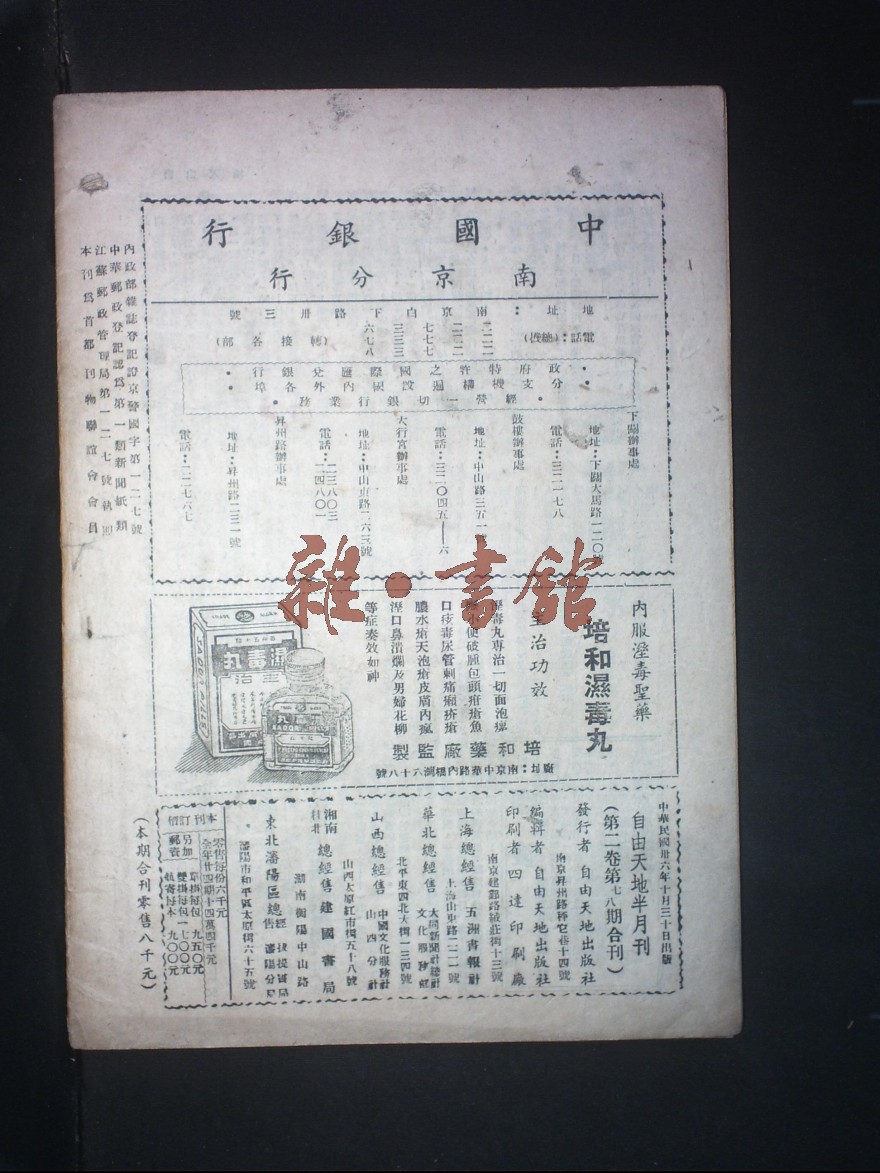 中國銀行
南京分行
地址：南京白下路卅三號
電話：（總機）二二二二二二七七七三三三六七八（轉接各部）
政府特許之國際匯兌銀行
分支機構遍設國內外各埠
經營一切銀行業務
下關辦事處
地址：下關大馬路一二〇號
電話：三二一七八
鼓樓辦事處
地址：中山路三五一號
電話：三二〇四五——六
大行宮辦事處
地址：中山東路二六三號
電話：二三八〇三
二四八〇一
昇州路辦事處
地址：昇州路一三一號
電話：二二七六七
內政部雜誌登記證京警國字第一二七號
中華郵政登記認為第一類新聞紙類
江蘇郵政管理局第一二七號執照
本刊為首都刊物聯誼會會員
雜·書館
內服溼毒聖藥
培和濕毒丸
主治功效
溼毒丸專治一切面泡瘰
便破腫包頭疳瘡魚
口疾毒尿管刺痛癩疥瘡
膿水瘡天泡瘡皮膚內瘋
溼口鼻潰爛及男婦花柳
等症奏效如神
培和藥廠監製
廠址：南京中華路內橋灣六十八號
濕毒丸
主治
中華民國卅六年十月三十日出版
自由天地半月刊
（第二卷第七八期合刊）
發行者 自由天地出版社
南京昇州路糯它巷十四號
編輯者 自由天地出版社
印刷者 四達印刷廠
南京建鄴路絨莊街十三號
上海總經售 五洲書報社
上海山東路二二一號
華北總經售 大同新聞社總社
文化服務部
北平東四北大街一三四號
山西總經售 中國文化服務社
山西分社
山西太原紅市街五十八號
湘南總經售 建國書局
湖南衡陽中山路
東北瀋陽區總經售 拔提書局
瀋陽分局
瀋陽市和平區太原街六十五號
本刊訂價
零售每份六千元
全年廿四期十四萬四千元
另加郵資
單掛每包一九五〇元
雙掛每包一七〇〇元
航寄每本九〇〇元
（本期合刊零售八千元）